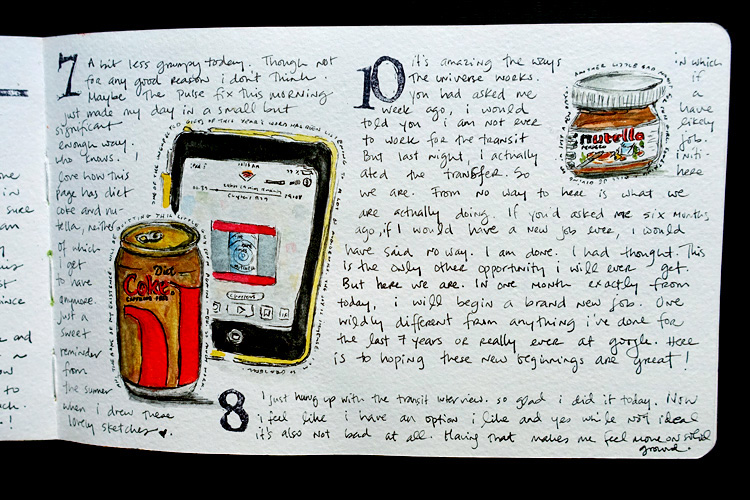 7 A bit less grumpy today. Though not
for any good reason i don't think.
Maybe the pulse fix this morning
just made my day in a small but
significant
enough way.
who knows. i
love how this
page has diet
coke and nu-
tella, neither
of which
i get
to have
anymore.
just a
sweet
reminder
from
the summer
when i drew these
lovely sketches
Diet
Coke
CAFFEINE FREE
8 I just hung up with the transit interview. so glad i did it today. Now
i feel like i have an option i like and yes while not ideal
it's also not bad at all. Having that makes me feel more on solid
ground.
10 it's amazing the ways
the universe works.
you had asked me
week ago, i would
told you i am not ever
to work for the transit
But last night, i actually
ated the transfer. So
we are. From no way to here is what we
are actually doing. If you'd asked me six months
ago, if I would have a new job ever, i would
have said no way. I am done. I had thought. This
is the only other opportunity i will ever get.
But here we are. In one month exactly from
today, i will begin a brand new job. One
wildly different from anything i've done for
the last 7 years or really ever at google. Here
is to hoping these new beginnings are great!
in which
if
a
have
likely
job.
initi
here
nutella
one
in
sure
am
since
and
to